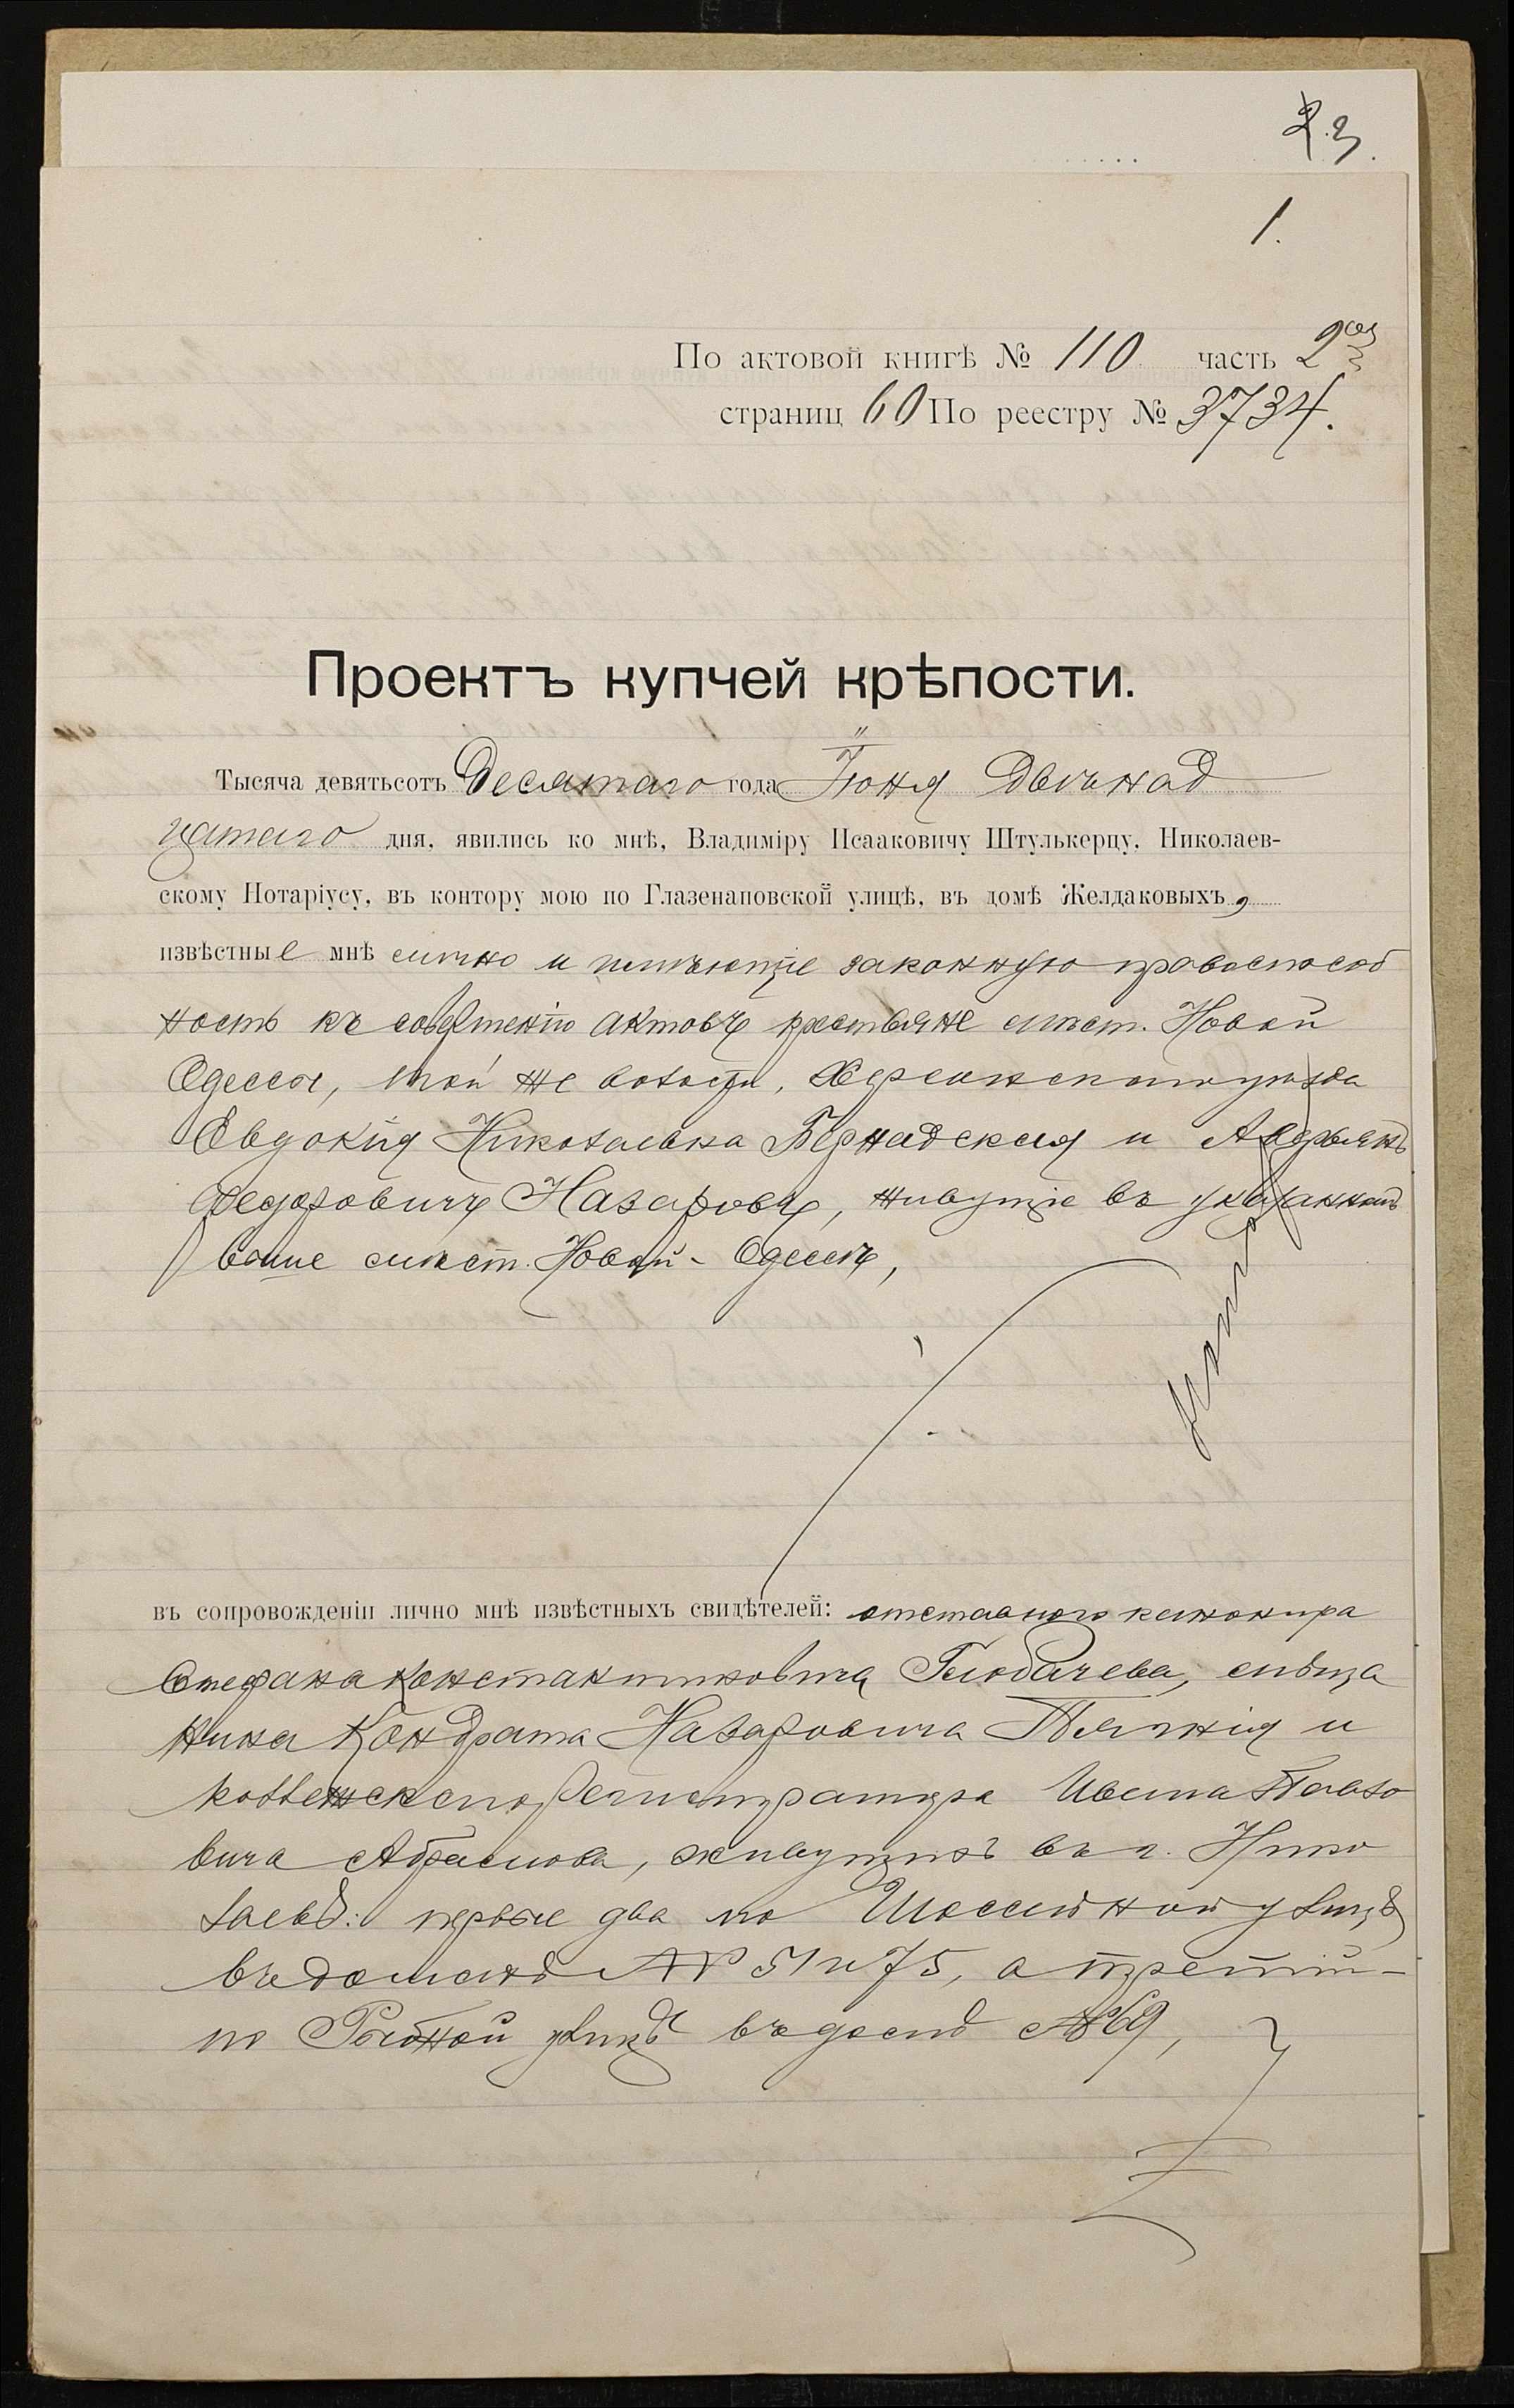 2.3.
1.
По актовой книгѣ № 110 часть 2ая
страниц 60 По реестру № 3734.
Проектъ купчей крѣпости.
Тысяча девятьсотъ Десятаго года Іюня двѣнад
цатаго дня, явились ко мнѣ, Владиміру Исааковичу Штулькерцу, Николаев-
скому Нотаріусу, въ контору мою по Глазенаповской улицѣ, въ домѣ Желдаковыхъ,
извѣстные мнѣ лично и имѣющіе законную правоспособ
ность къ совершенію актовъ крестьяне мѣст. Новой
Одессы, той же волости, Херсонскаго уѣзда
Евдокія Николаевна Бернадская и Андрьянъ
Федоровичъ Назаровъ, живущіе въ указанномъ
выше мѣст. Новой-Одессѣ,
въ сопровожденіи лично мнѣ извѣстныхъ свидѣтелей: отставного канонира
Стефана Константиновича мѣща
нина Кондрата Назаровича и
коллежскаго регистратора Ивана Павло
вича Абрамова, живущихъ въ г. Нико
лаевѣ: первые два по Шоссейной улицѣ
въ домахъ №№ 51 и 75, а третій-
по Рыбной улицѣ въ домѣ № 69,